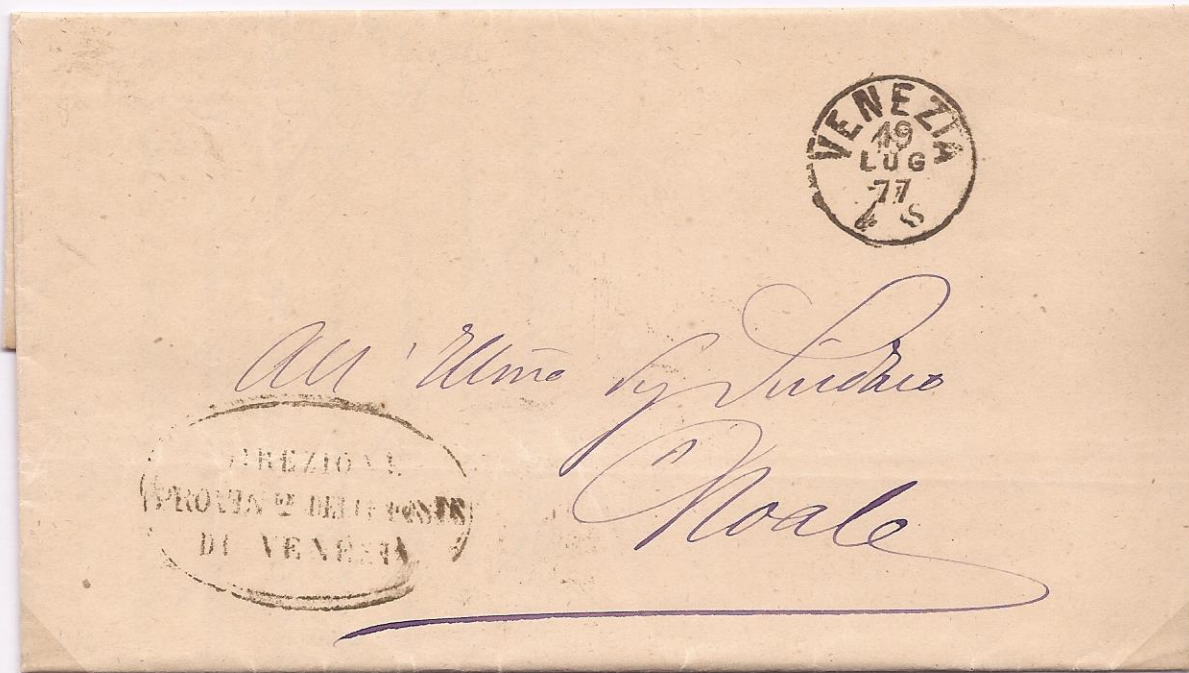 VENEZIA
19
LUG
77
4 S
All' Illmo Sig Sindaco
Noale
DIREZIONE
PROVIN LE DELLE POSTE
DI VENEZIA